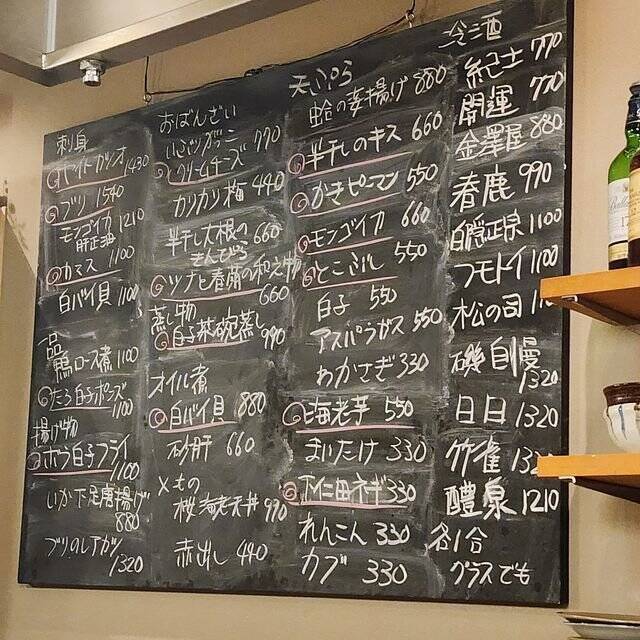 刺身
ホワイトカツオ 1430
ブリ 1540
モンゴイカ
肝正油 1210
カマス 1100
白バイ貝 1100
一品
鴨ロース煮 1100
たら白子ポンズ
1100
揚げ物
ホワ白子フライ
1100
いか下足唐揚げ
880
ブリのレアカツ
1320
おばんざい
いぶりがっこ
クリームチーズ 770
カリカリ梅 440
半干し大根の
きんぴら 660
ツナと春菊の和え物
660
蒸し物
白子茶碗蒸し
990
オイル煮
白バイ貝 880
砂肝 660
〆の
桜海老天丼 990
赤出し 440
天ぷら
蛤の姿揚げ 880
半干しのキス 660
かきピーマン 550
モンゴイカ 660
とこぶし 550
白子 550
アスパラガス 550
わかさぎ 330
海老芋 550
まいたけ 330
下仁田ネギ 330
れんこん 330
カブ 330
冷酒
紀土 770
開運 770
金澤屋 880
春鹿 990
白隠正宗 1100
フモトイ 1100
松の司
磯自慢
1320
日日 1320
竹雀 1320
醴泉 1210
各1合
グラスでも